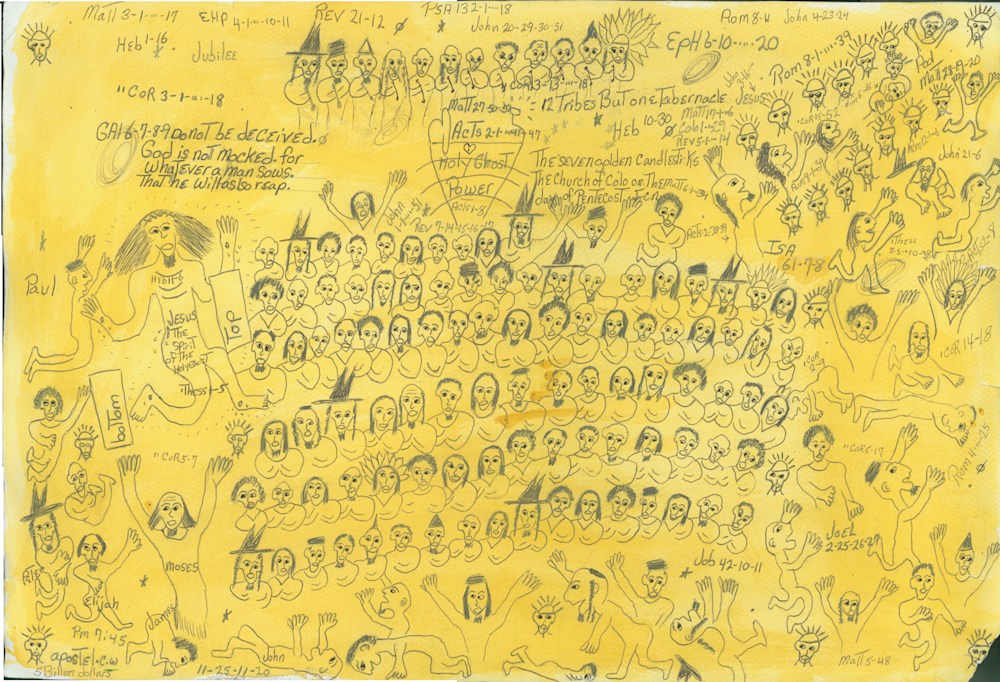 Matt 3-1-···-17
EHP 4-1-··-10-11
REV 21-12
PSA 132-1-···18
John 20-29-30-31
Rom 8-11
John 4-23-24
Heb 1-16
Jubilee
EpH 6-10-····-20
Rom 8-1-····-39
"COR 3-1-···-18
COR 13-13-···-18
Matt 27-50-51
12 Tribes But one Tabernacle JESUS
Matt 28-19-20
Acts 2-1-···-47
Heb 10-30
Matt 17-1-···-6
Colo 1-15-19
REV 5-1-14
GAl 6-7-8-9 Do not be deceived.
God is not mocked. for
whatever a man sows.
That he will also reap.
Holy Ghost
Power
Acts 1-8
The seven golden Candlesticks
The Church of Colo or. The
day of Pentecost
John 21-6
John
1-47-51
REV 7-14-15-16-17
Acts 2-38-39
ISA
61-7-8
"Thess
Paul
HEB 11-6
JESUS
The
Spirit
of the
Holy Ghost
Top
"Thess 1-5
bottom
"COR 14-18
"COR 5-7
"COR 5-17
Rom 4-····-25
JoEL
2-25-26-27
Moses
Elijah
Job 42-10-11
Pm 7:45
apostel.c.w
5 Billon dollars
James
11-25-11-20
John
Matt 5-48